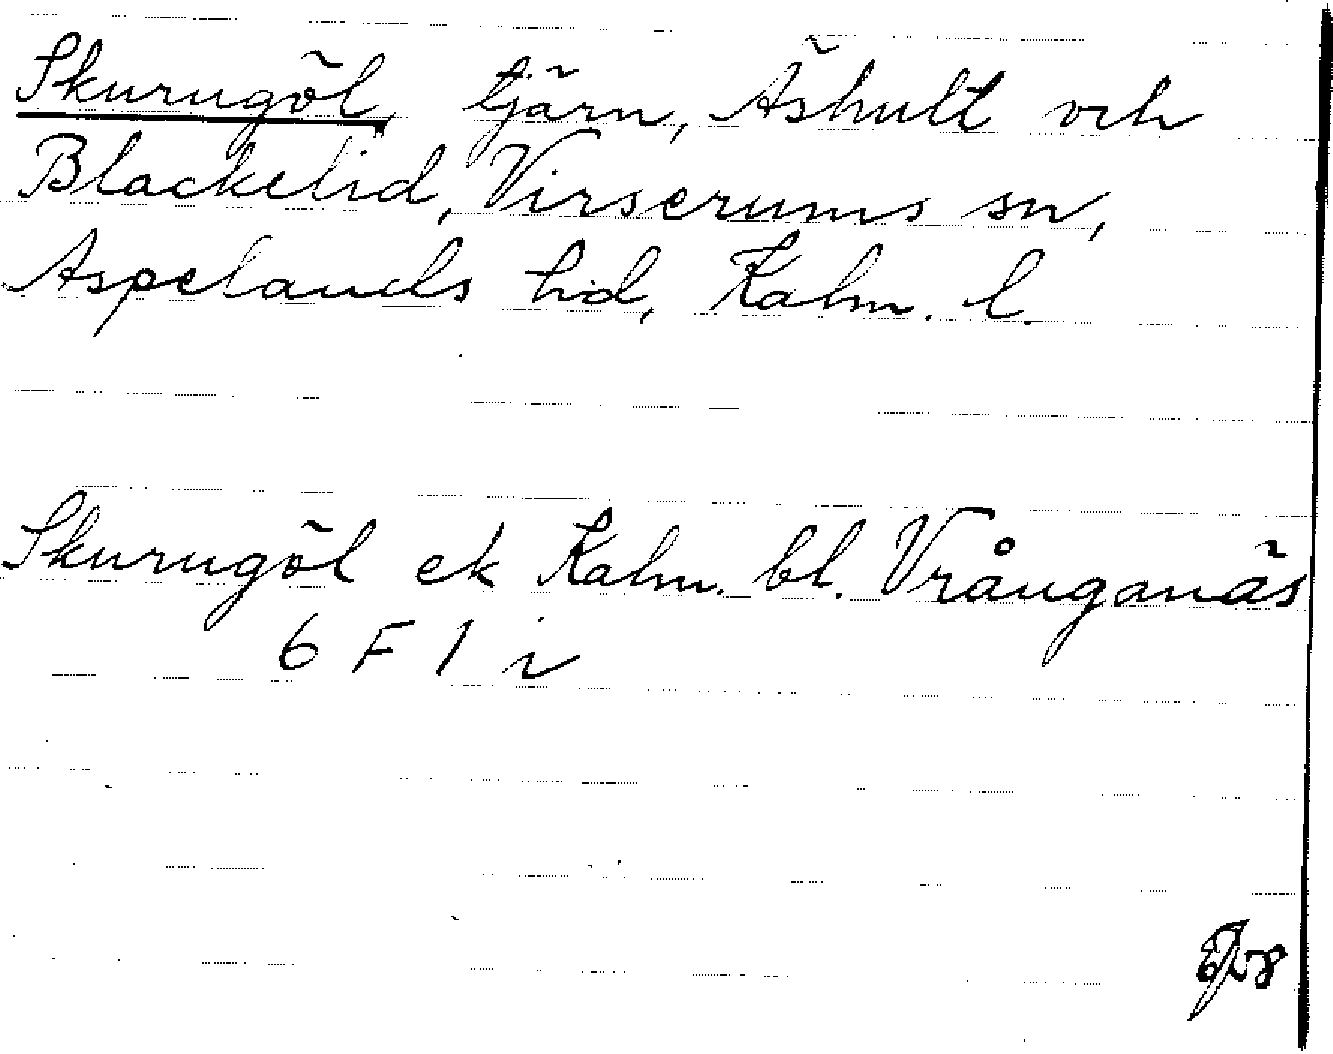 Skurugöl, tjärn, Äshult och
Blackelid, Virserums sn,
Aspelands hd, Kalm. l.
Skurugöl ek Kalm. bl. Vrånganäs
6 F 1 i